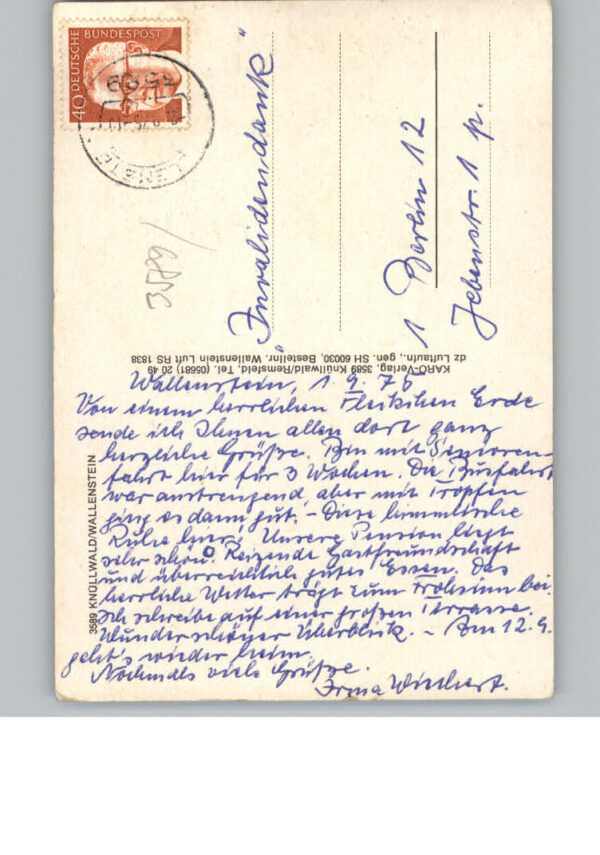 DEUTSCHE BUNDESPOST
40
3589
"Invalidendank"
1 Berlin 12
Jebenstr. 1 p.
3589/
KARO-Verlag, 3589 Knüllwald/Remsfeld, Tel. (05681) 20 49
dz Luftaufn., gen. SH 60030, Bestellnr. Wallenstein Luft RS 1838
3589 KNÜLLWALD/WALLENSTEIN
Wallenstein, 1. 9. 76
Von einem herrlichen Fleckchen Erde
sende ich Ihnen allen dort ganz
herzliche Grüße. Bin mit Senioren-
fahrt hier für 3 Wochen. Die Busfahrt
war anstrengend, aber mit Tropfen
ging es dann gut. – Diese himmlische
Ruhe hier. Unsere Pension liegt
sehr schön. Reizende Gastfreundschaft
und überreichlich gutes Essen. Das
herrliche Wetter trägt zum Frohsinn bei.
Ich schreibe auf einer großen Terrasse.
Wunderschöner Überblick. – Am 12. 9.
geht's wieder heim.
Nochmals viele Grüße.
Irma